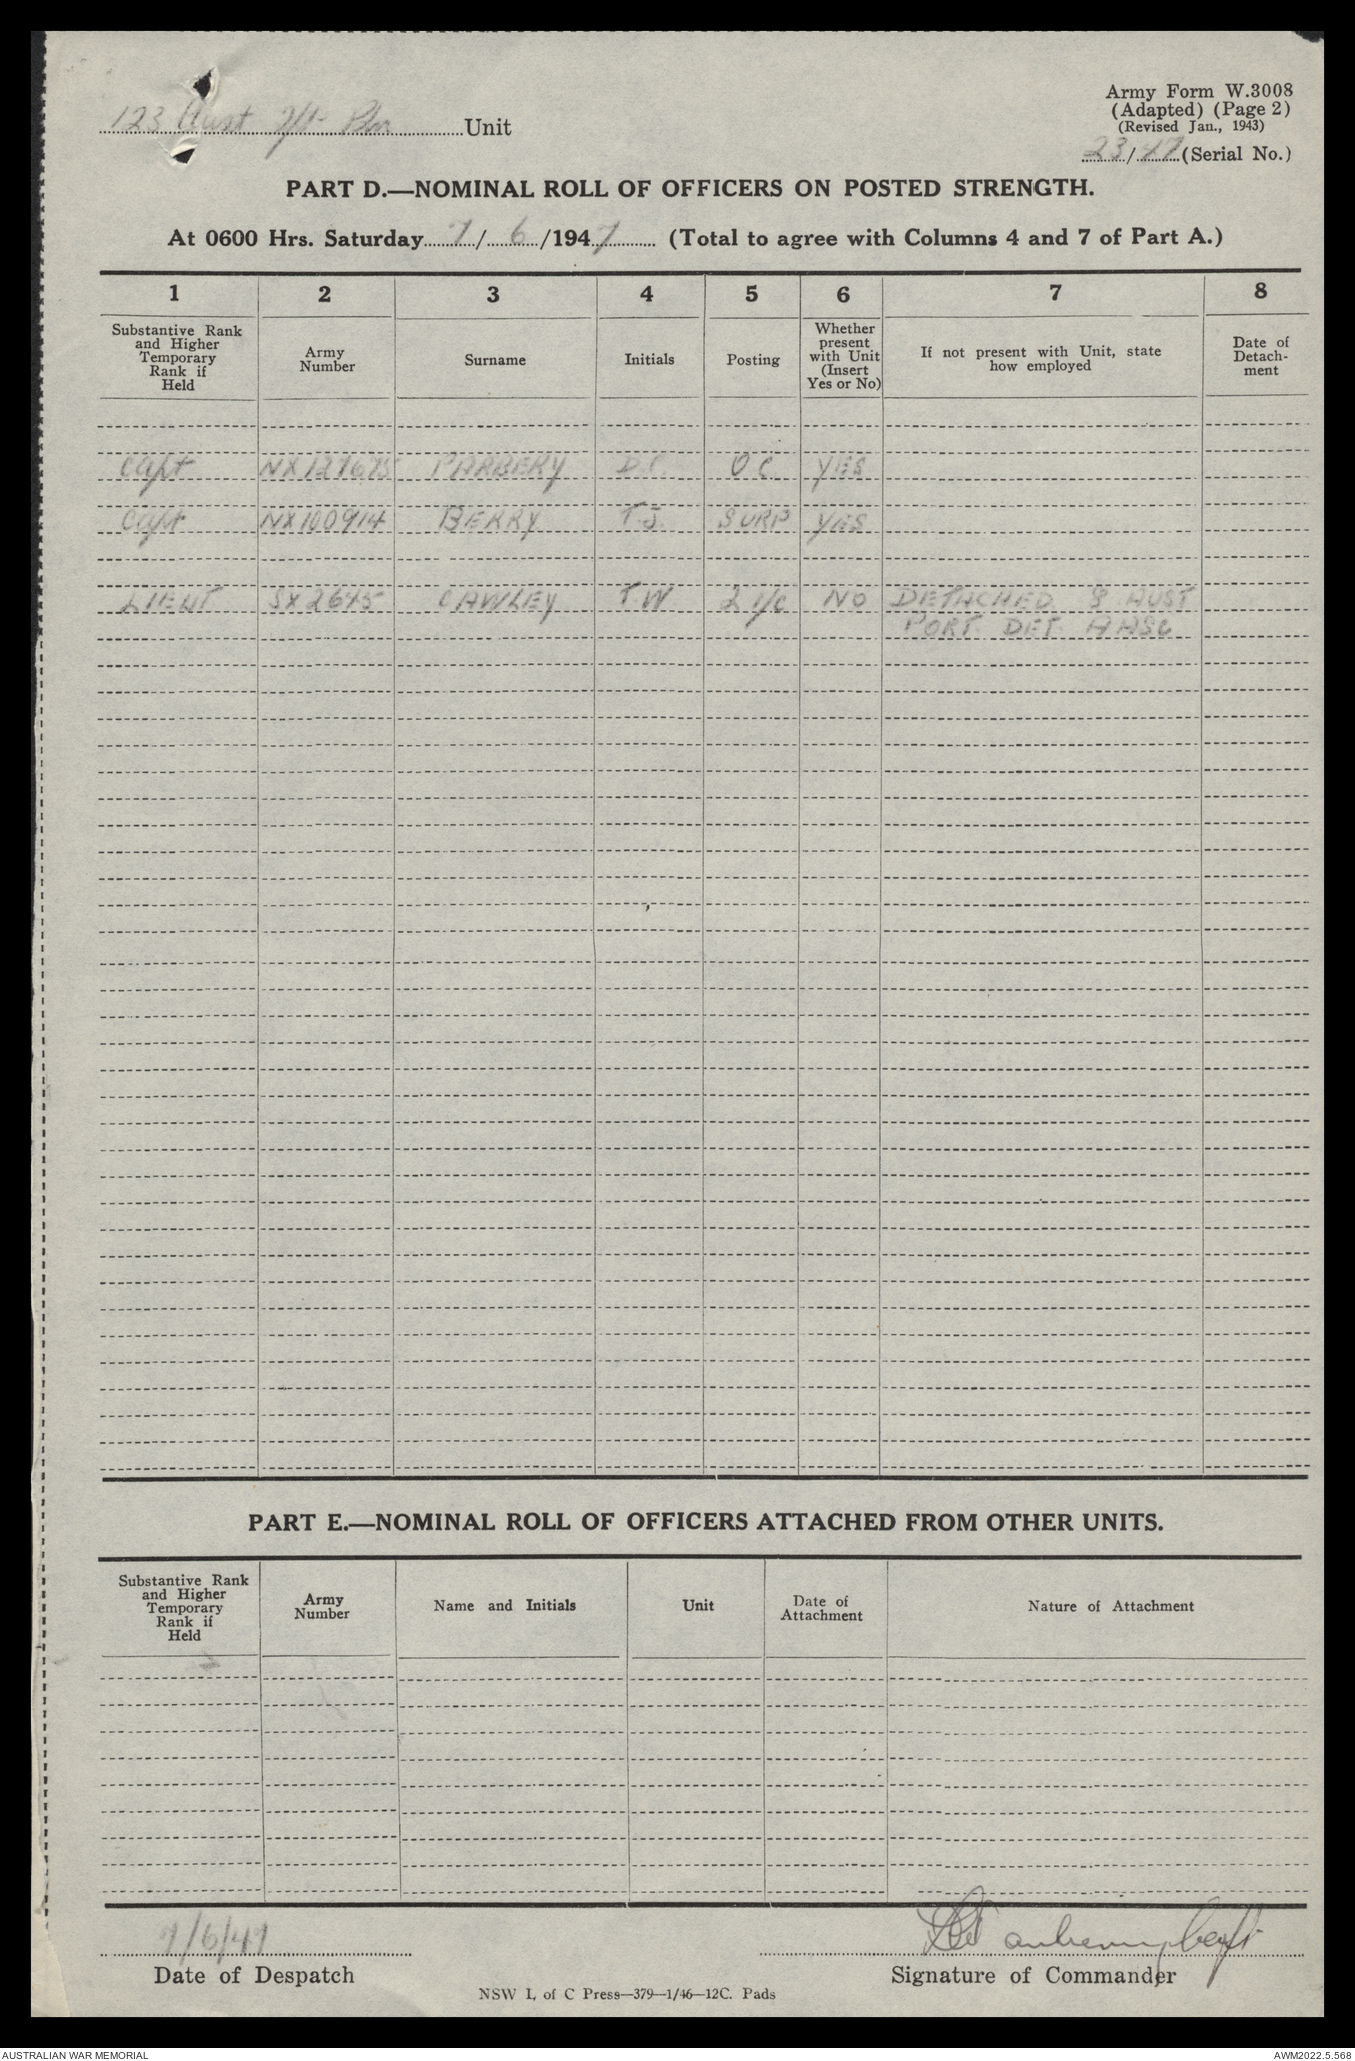 Army Form W.3008
(Adapted) (Page 2)
(Revised Jan., 1943)
123 Aust Unit
23/47 (Serial No.)
PART D.—NOMINAL ROLL OF OFFICERS ON POSTED STRENGTH.
At 0600 Hrs. Saturday 7/6/1947 (Total to agree with Columns 4 and 7 of Part A.)
1 2 3 4 5 6 7 8
Substantive Rank and Higher Temporary Rank if Held Army Number Surname Initials Posting Whether present with Unit (Insert Yes or No) If not present with Unit, state how employed Date of Detach-ment
Capt NX127675 PARBERY D.C. OC YES
Capt NX100914 BERRY T.J. SURP YES
LIEUT SX2645 CAWLEY T.W 2 I/C NO DETACHED 8 AUST
PORT DET AASC
PART E.—NOMINAL ROLL OF OFFICERS ATTACHED FROM OTHER UNITS.
Substantive Rank and Higher Temporary Rank if Held Army Number Name and Initials Unit Date of Attachment Nature of Attachment
7/6/47
Date of Despatch Signature of Commander
NSW L of C Press—379—1/46—12C. Pads
AUSTRALIAN WAR MEMORIAL AWM2022.5.568